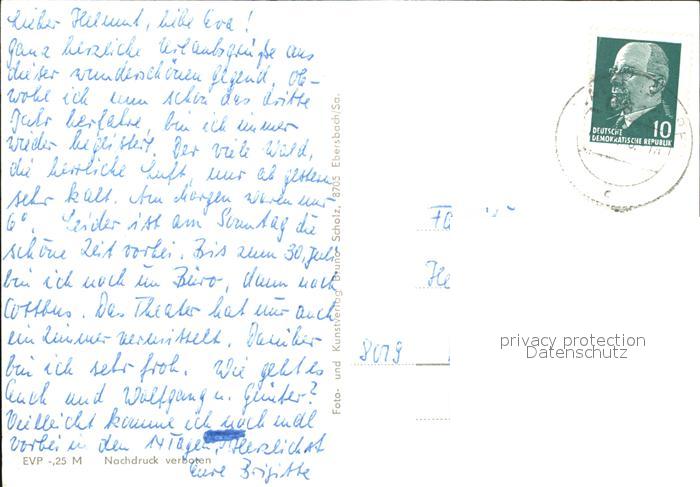 Lieber Helmut, liebe Eva!
Ganz herzliche Urlaubsgrüße aus
dieser wunderschönen Gegend. Ob-
wohl ich nun schon das dritte
Jahr herfahre, bin ich immer
wieder begeistert. Der viele Wald,
die herrliche Luft, nur ab gestern
sehr kalt. Am Morgen waren nur
6°. Leider ist am Sonntag die
schöne Zeit vorbei. Bis zum 30. Juli
bin ich noch im Büro, dann nach
Cottbus. Das Theater hat mir auch
ein Zimmer vermittelt. Darüber
bin ich sehr froh. Wie geht es
Euch und Wolfgang u. Günter?
Vielleicht komme ich noch mal
vorbei in den Tagen. Herzlichst
Eure Brigitte
EVP -,25 M Nachdruck verboten
Foto- und Kunstverlag Bruno Scholz, 8705 Ebersbach/Sa.
10
DEUTSCHE
DEMOKRATISCHE REPUBLIK
Fa
He
8019
privacy protection
Datenschutz